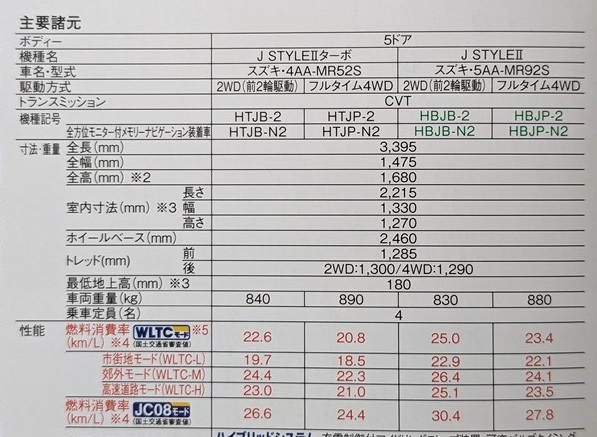 主要諸元
ボディー 5ドア
機種名 J STYLEⅡターボ J STYLEⅡ
車名・型式 スズキ・4AA-MR52S スズキ・5AA-MR92S
駆動方式 2WD(前2輪駆動) フルタイム4WD 2WD(前2輪駆動) フルタイム4WD
トランスミッション CVT
機種記号 HTJB-2 HTJP-2 HBJB-2 HBJP-2
全方位モニター付メモリーナビゲーション装着車 HTJB-N2 HTJP-N2 HBJB-N2 HBJP-N2
寸法・重量 全長(mm) 3,395
全幅(mm) 1,475
全高(mm) ※2 1,680
室内寸法(mm) ※3 長さ 2,215
幅 1,330
高さ 1,270
ホイールベース(mm) 2,460
トレッド(mm) 前 1,285
後 2WD:1,300/4WD:1,290
最低地上高(mm) ※3 180
車両重量(kg) 840 890 830 880
乗車定員(名) 4
性能 燃料消費率 WLTCモード ※5
(km/L) ※4 (国土交通省審査値) 22.6 20.8 25.0 23.4
市街地モード(WLTC-L) 19.7 18.5 22.9 22.1
郊外モード(WLTC-M) 24.4 22.3 26.4 24.1
高速道路モード(WLTC-H) 23.0 21.0 25.1 23.5
燃料消費率 JC08モード
(km/L) ※4 (国土交通省審査値) 26.6 24.4 30.4 27.8
ハイブリッドシステム